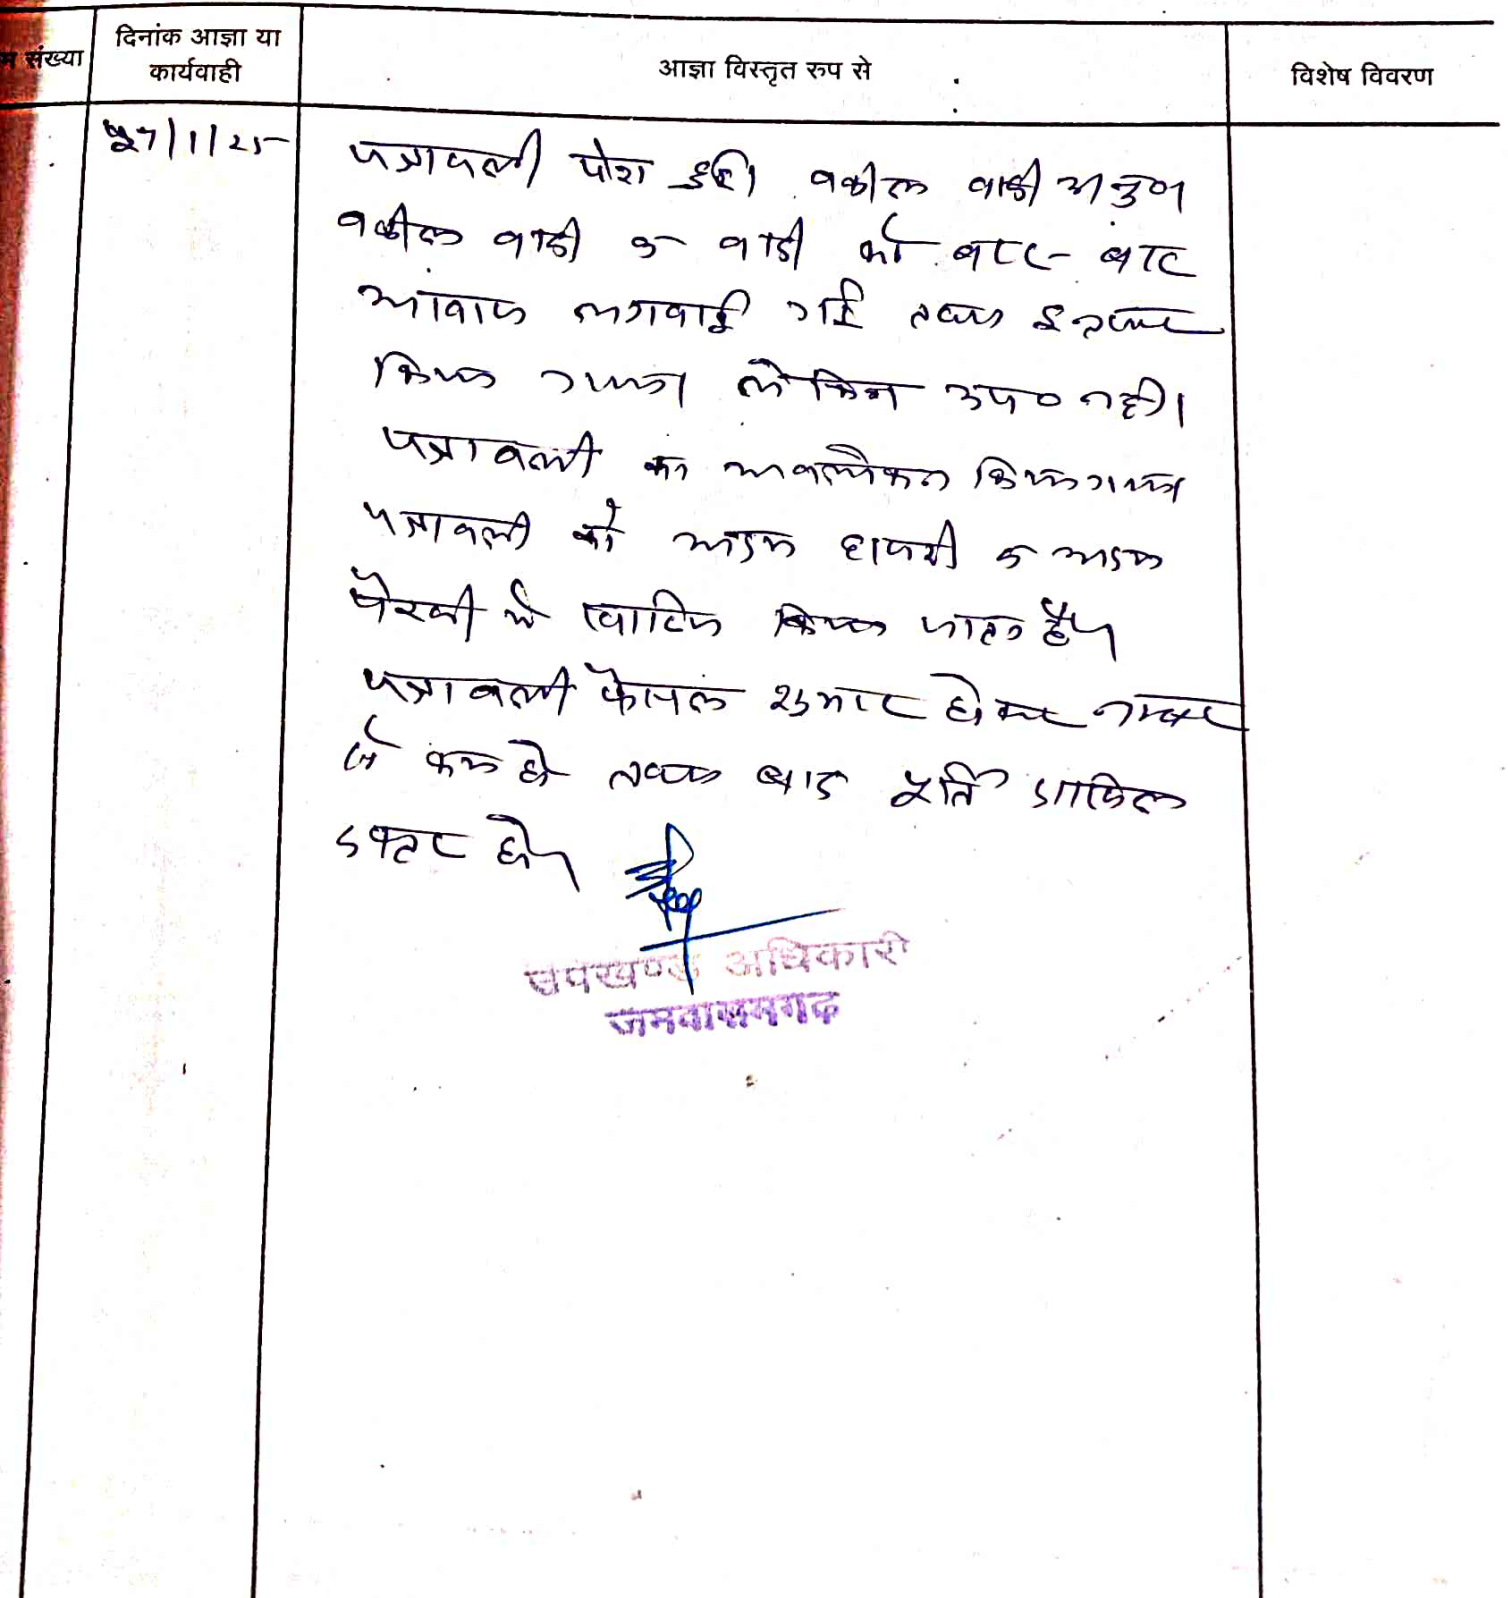 संख्या
दिनांक आज्ञा या
कार्यवाही
आज्ञा विस्तृत रुप से
विशेष विवरण
27/1/25
पत्रावली पेश हुई। वकील वादी अनु०
वकील वादी व वादी को बार-बार
आवाज लगवाई गई तथा इन्तजार
किया गया लेकिन उप० नही।
पत्रावली का अवलोकन किया गया
पत्रावली को अदम हाजरी व अदम
पैरवी मे खारिज किया जाता है।
पत्रावली फैसल शुमार होकर नम्बर
से कम हो तथा बाद पूर्ति दाखिल
दफ्तर हो।
उपखण्ड अधिकारी
जमवारामगढ़